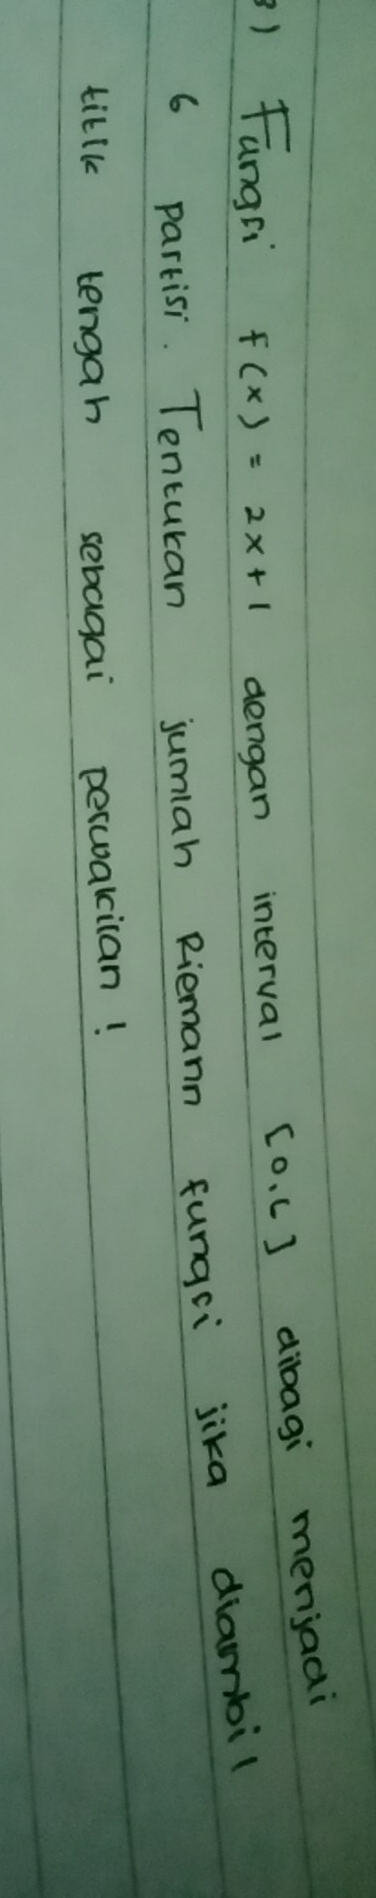 3) Fungsi f(x) = 2x+1 dengan interval [0,6] dibagi menjadi
6 partisi. Tentukan jumlah Riemann fungsi jika diambil
titik tengah sebagai perwakilan!